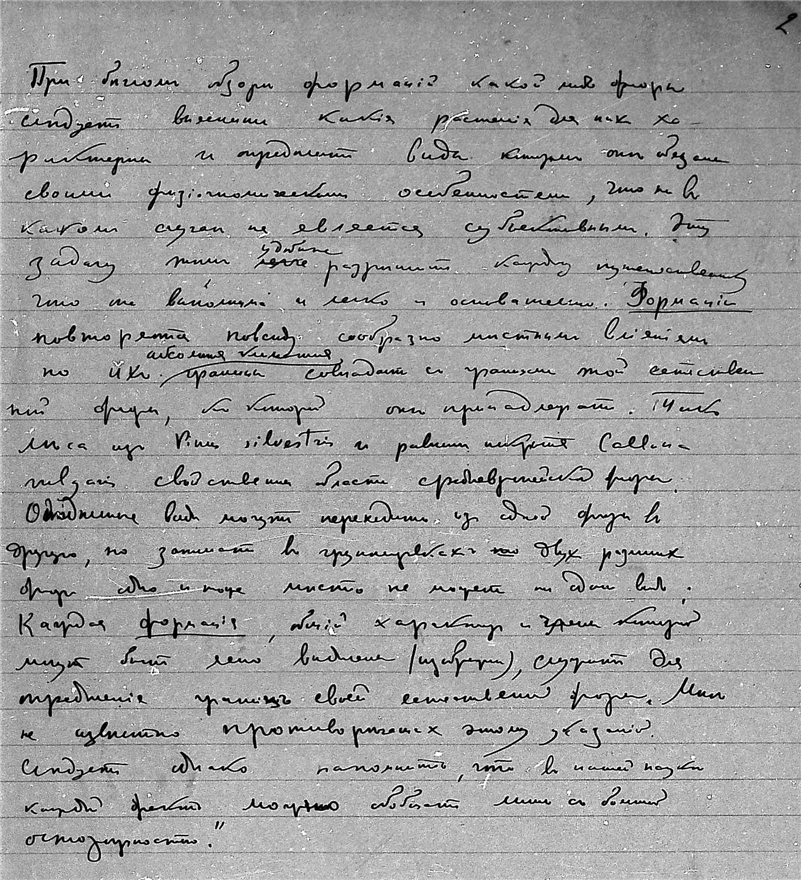 2
При беглом обзоре формацій какой либо флоры
следует выяснить какія растенія для них ха-
рактерны и определить вида которым они обязаны
своими физіогномическими особенностями, что ни в
каком случае не является субъективным. Эту
задачу удобнее разрешит каждый путешественник
что и легко и основательно. Формаціи
повторяются повсюду сообразно местным вліяніям
но их абсолютныя границы совпадают с границами той естествен
ной флоры, к которой они принадлежат. Так
леса из Pinus silvestris и равнины покрытые Calluna
vulgaris свойственны области среднеевропейской флоры.
Отдельные виды могут переходить из одной флоры в
другую, но занимать в группировках двух разных
флор одно и тоже место не может ни один вид.
Каждая формація, общій характер и члены которой
могут быть ясно выделены (), служит для
определенія границ своей естественной флоры. Мне
не известно противоречащих этому указаній.
Следует однако напомнить, что в нашей науке
каждый факт можно обобщать лишь с большой
осторожностью."